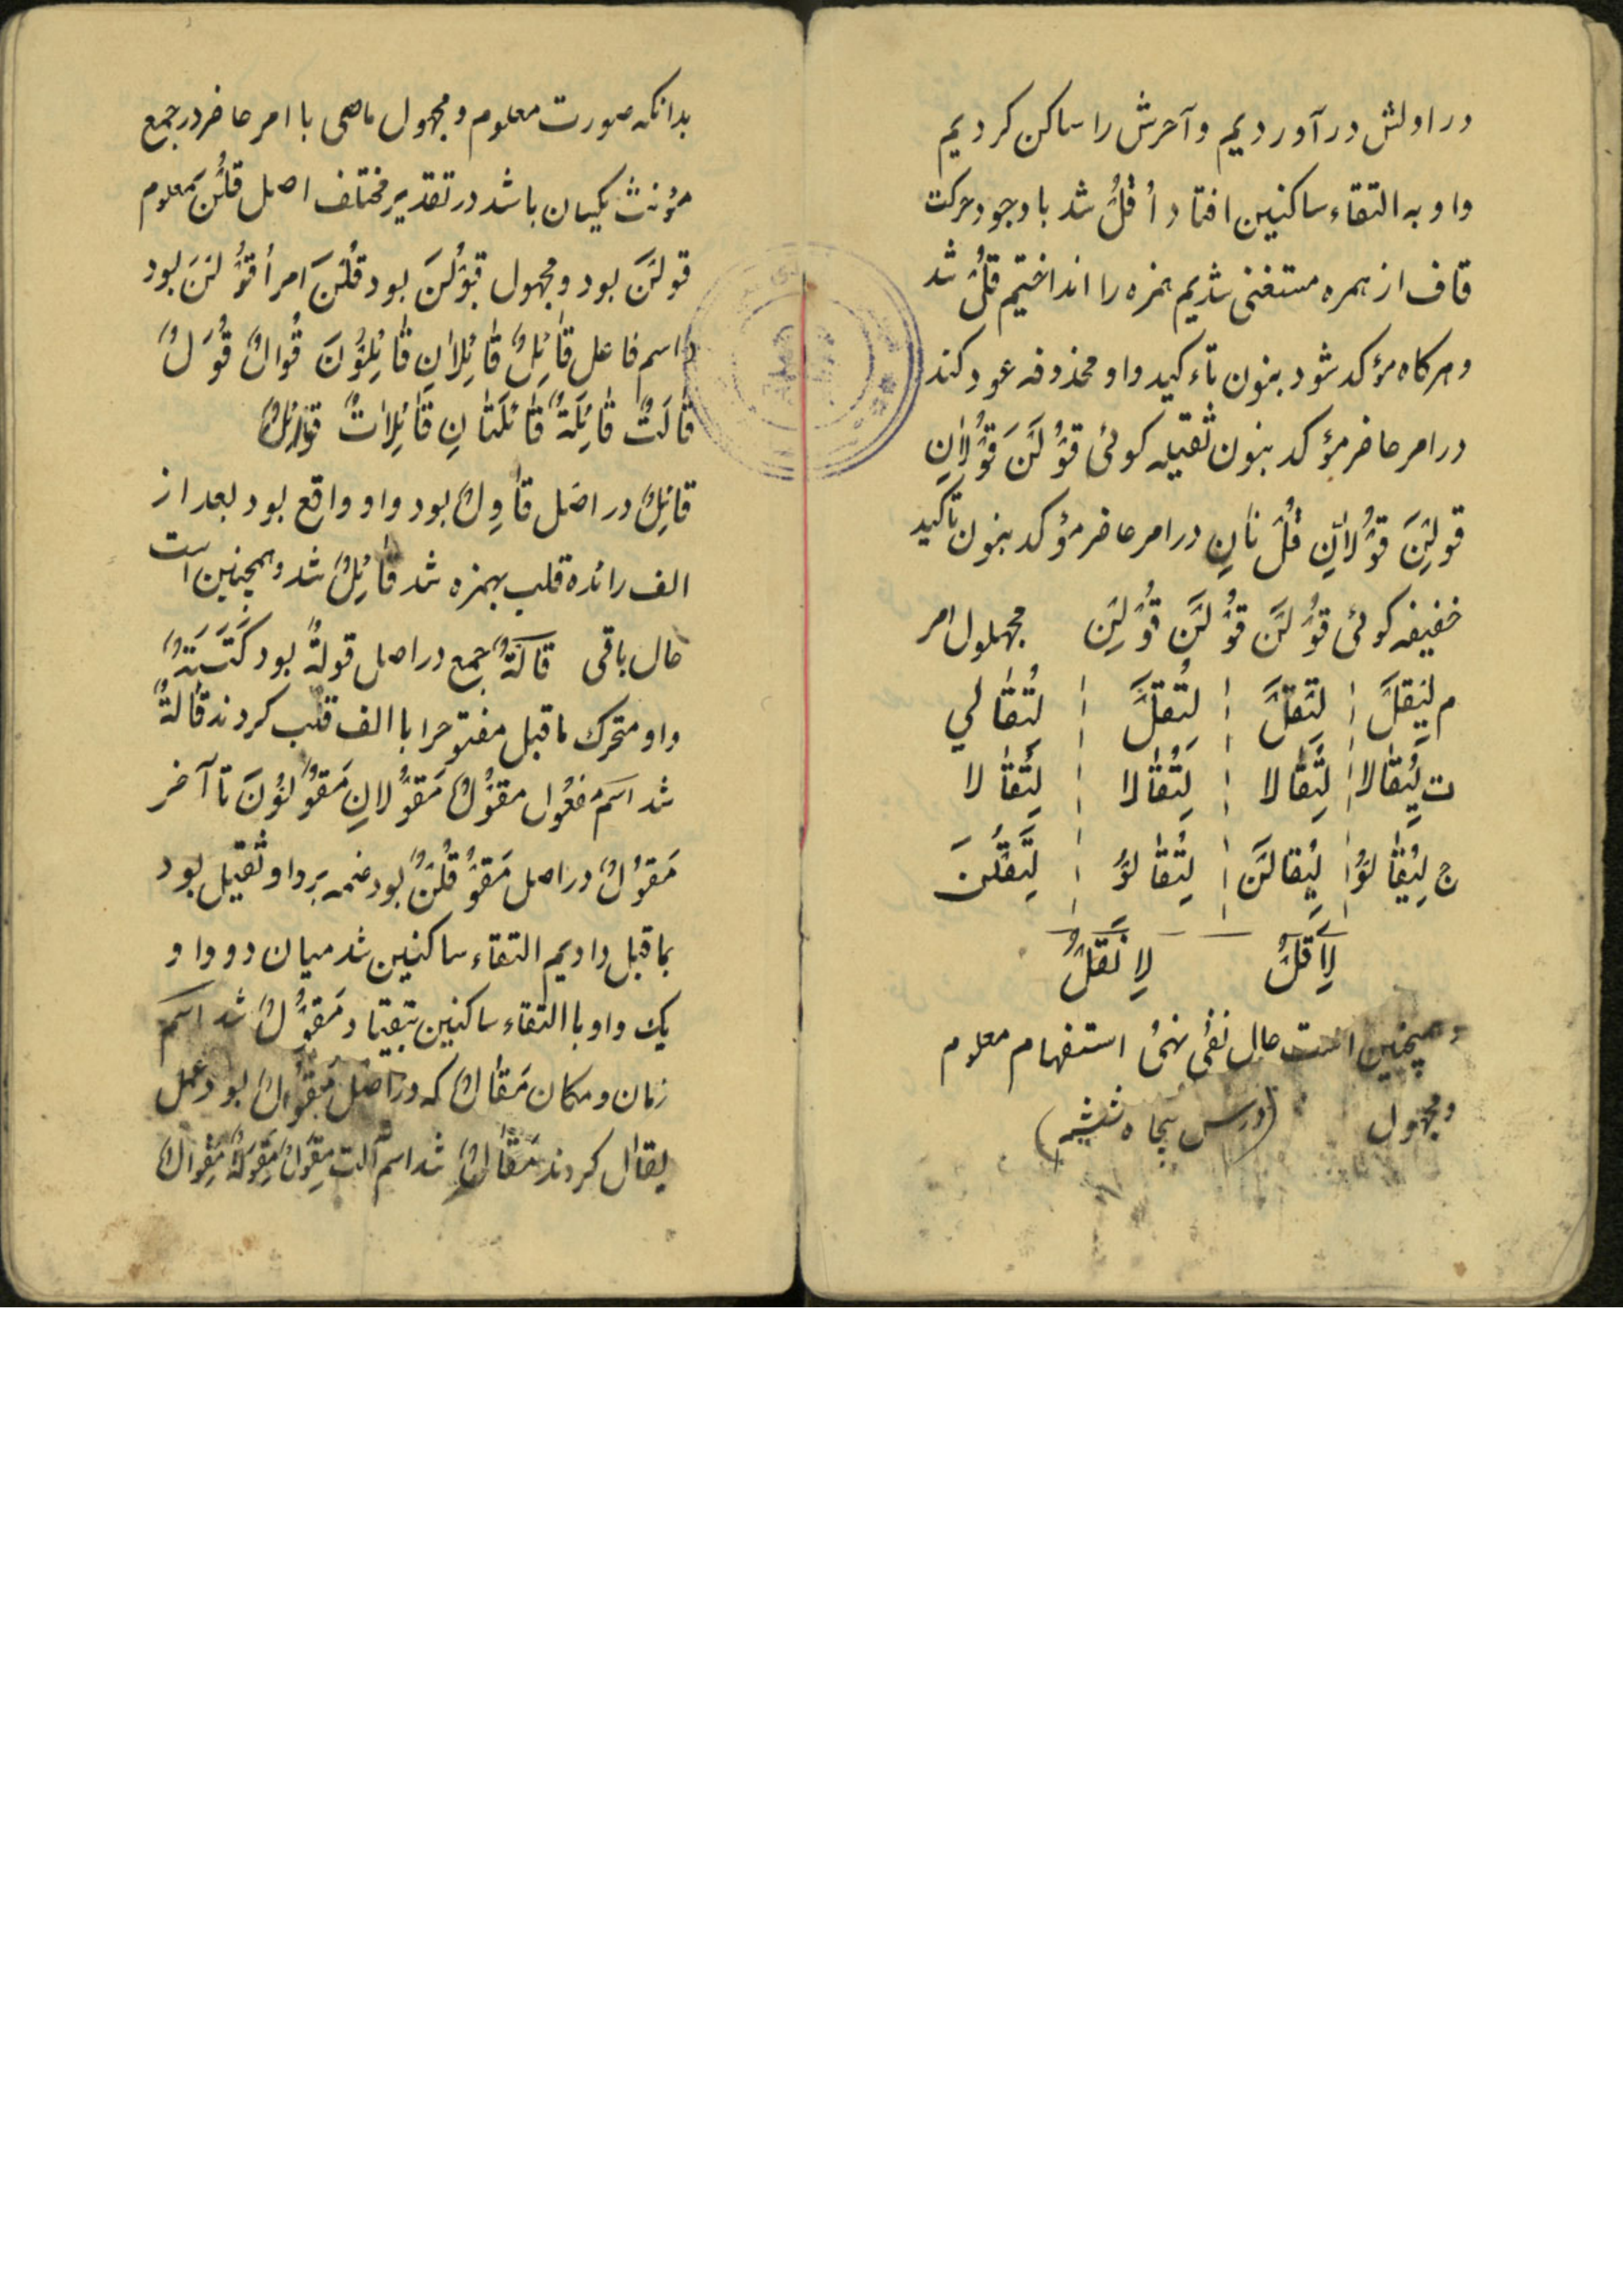 در اولش در آوردیم و آحرش را ساکن کردیم
واو به التقاء ساکنین افتاد اُقُلْ شد با وجود حرکت
قاف از همره مستغنی شدیم همزه را انداختیم قُلْ شد
و هرکاه مؤکد شود بنون تاءکید واو محذوفه عود کند
در امر حاضر مؤکد بنون ثقیله کوئی قُوْلَنَّ قُوْلاٰنِ
قولِنَّ قُوْلاٰنِّ قُلْ نٰانِ در امر حاضر مؤکد بنون تاکید
خفیفه کوئی قُوْلَنْ قُوْلُنْ قُوْلِنْ مجهلول امر
م لِیُقَلْ لِتُقَلْ لِتُقَلْ لِتُقٰالي
ت لِیُقٰالا لِتُقٰالا لِتُقٰالا لِتُقٰالا
ج لِیُقٰالُوْا لِیُقالَنْ لِتُقٰالُوْ لِتُقَلْنَ
لِاُقَلْ لِانُقَلْ
وهمچنین است حال نفی نهی استفهام معلوم
ومجهول (درس پنجاه ششم)
بدانکه صورت معلوم و مجهول ماضی با امر حاضر در جمع
مؤنث یکسان باشد در تقدیر مختلف اصل قُلْنَ معلوم
قولْنَ بود و مجهول قُوِلْنَ بود قُلْنَ امر اُقْوُلْنَ بود
و اسم فاعل قٰائِلٌ قٰائِلانِ قٰائِلُوْنَ قُوّالٌ قُوَّلٌ
قٰالَةٌ قٰائِلَةٌ قٰائِلَتٰانِ قٰائِلاتٌ قَوٰائِلُ
قائِلٌ در اصل قٰاوِلٌ بود واو واقع بود بعد از
الف رائده قلب بهمزه شد قٰائِلٌ شد و همچنین است
حال باقی قٰالَةٌ جمع در اصل قولةٌ بود کَتَبَةٌ
واو متحرک ماقبل مفتوحرا با الف قلب کردند قٰالةٌ
شد اسم مفعُول مقوُلٌ مَقوُلانِ مَقوُلوُنَ تا آخر
مَقوُلٌ در اصل مَقوُلٌ بود ضمه بر واو ثقیل بود
بماقبل دادیم التقاء ساکنین شد میان دو واو
یک واو با التقاء ساکنین بیفتاد مَقوُلٌ شد اسم
زمان و مکان مَقٰالٌ که در اصل مَقْوَلٌ بود عمل
یقال کردند مَقٰالٌ شد اسم آلت مِقْوَلٌ مِقْوَلَةٌ مِقْوالٌ